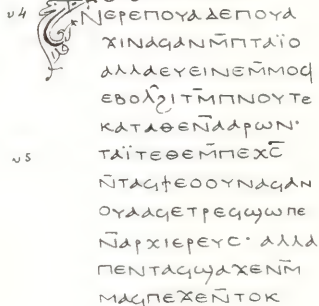 v4 ⲛⲉⲣⲉⲡⲟⲩⲁ ⲇⲉⲡⲟⲩⲁ
ϫⲓⲛⲁϥⲁⲛⲙ̄ⲡⲧⲁⲓ̈ⲟ
ⲁⲗⲗⲁⲉⲩⲉⲓⲛⲉⲙ̄ⲙⲟϥ
ⲉⲃⲟⲗϩⲓⲧⲙ̄ⲡⲛⲟⲩⲧⲉ
ⲕⲁⲧⲁⲑⲉⲛ̄ⲁⲁⲣⲱⲛ·
v5 ⲧⲁⲓ̈ⲧⲉⲑⲉⲙ̄ⲡⲉⲭⲥ̄
ⲛ̄ⲧⲁϥϯⲉⲟⲟⲩⲛⲁϥⲁⲛ
ⲟⲩⲁⲁϥⲉⲧⲣⲉϥϣⲱⲡⲉ
ⲛ̄ⲁⲣⲭⲓⲉⲣⲉⲩⲥ· ⲁⲗⲗⲁ
ⲡⲉⲛⲧⲁϥϣⲁϫⲉⲛⲙ̄
ⲙⲁϥⲡⲉϫⲉⲛ̄ⲧⲟⲕ